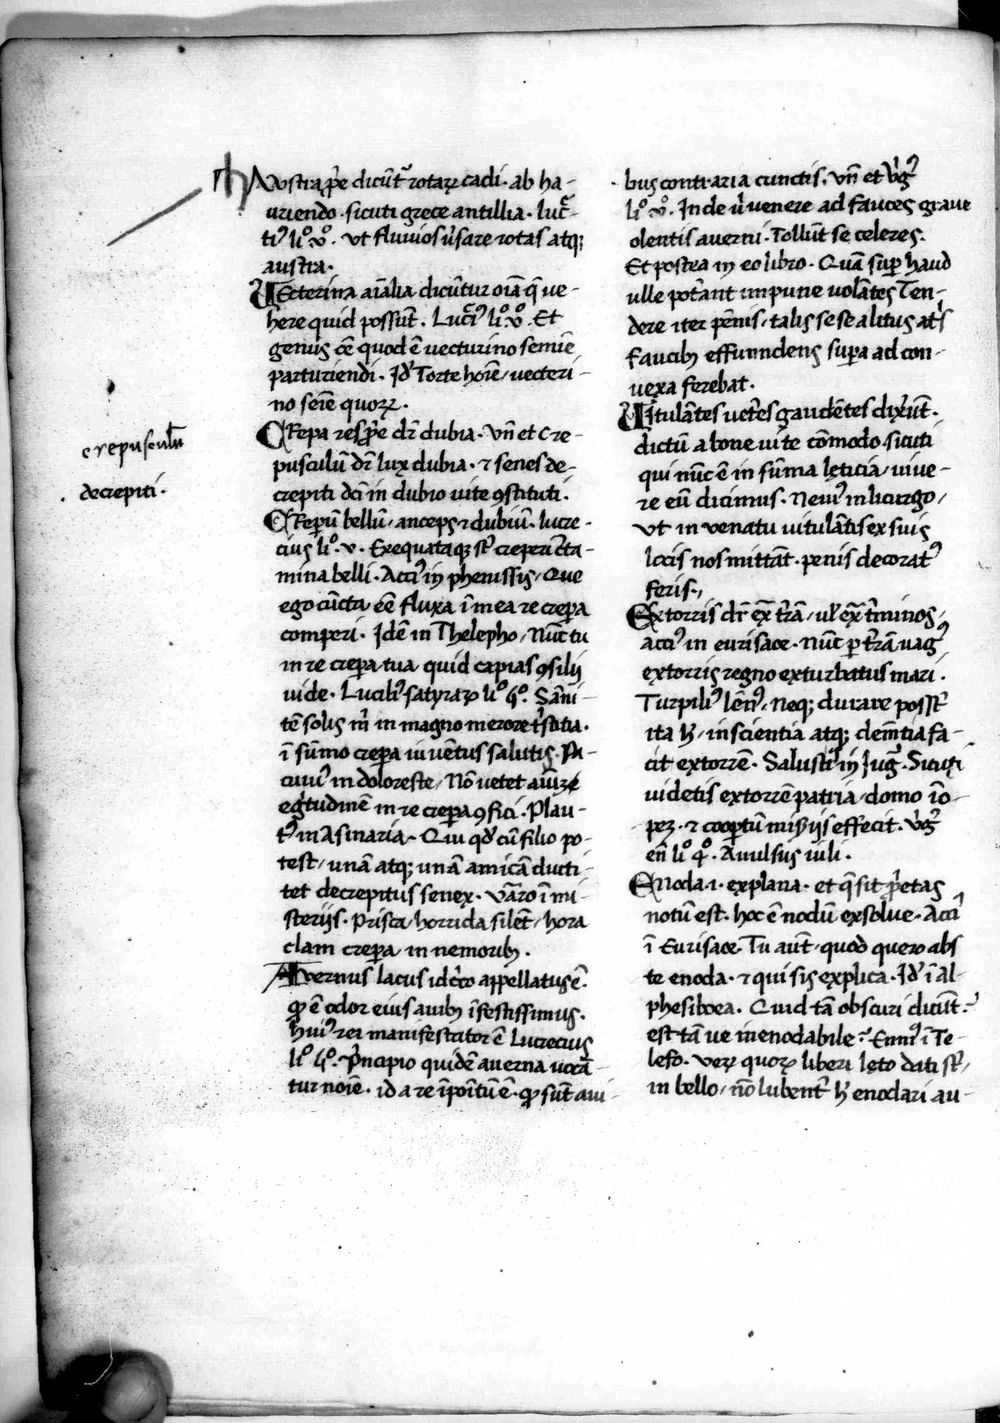 Austra ꝓpe dicūt᷑ rotaꝝ cadi · ab ha-
uriendo · sicuti grece antillia · luc̄-
tiꝰ liº. vº. vt fluuios ūsare rotas atqꝫ
austra ·
UEcterina aīalia dicūtur oīa q̄ ve-
here quid possūt . Luc̄iꝰ liº vº. Et
genus ōe quod ē uecturino semīe
parturiendi . Idē Torte hoīe, uecteri-
no seīe quoꝝ .
CRepa res ꝓpe dr̄ dubia · Vn̄ et Cre-
pusculū dr̄ lux dubia · ⁊ senes de-
crepiti dc̄i in dubio uite ꝯstituti .
crepusculū
decrepiti ·
CReperū bellū, anceps ⁊ dubiū . lucre-
cius liº. v · Exequataqꝫ st̄ creperi c̄ta-
mina belli · Acciꝰ in phenissis, Que
ego cūcta ēē fluxa ī mea re crepa
comperi · Idē in Thelepho, Nūc tu
in re crepa tua quid capias ꝯsilij
uide · Luciliꝰ satyraꝝ liº
tē solis m̄ in magno merore t̄stitia ·
ī sūmo crepa iuuētus salutis · Pa-
cuuiꝰ in doloreste, Nō uetet
egr̄tudinē in re crepa ꝯfici · Plau-
tꝰ in Asinaria, Cui qd̕ cū filio po-
test, unā atqꝫ unā amicā ducti-
tet decrepitus senex · Vāro ī mi-
sterijs · Prisca, horrida silēt, hora
clam crepa in nemoribꝫ .
Avernus lacus idc̄co appellatus ē ·
qꝫ ē odor eius auibꝫ īfestissimus ·
huiꝰ rei manifestator ē Lucrecius
liº · p̄ncipio quidē auerna uocā-
tur noīe · id a re īpoītū ē · qꝫ sūt aui-
bus contraria cunctis . Vn̄ et v̄gꝰ
liº. vº. Inde ū uenere ad fauces graue
olentis auerni · Tollūt se celeres ·
Et postea in eo libro · Quā sup haud
ulle pot̄ant impune uolātes Ten-
dere iter pēnis, talis sese alitus at̄s
faucibꝫ effunndens supa ad con-
uexa ferebat ·
UItulātes uct̄es gaudētes dix̄ūt ·
dictū a bone uite cōmodo · sicuti
qui nūc ē in sūma lęticia, uiue-
re eū dicimus · Neuiꝰ in licurgo,
Vt in venatu uitulātis ex suis
locis nos mittāt · penis decoratꝰ
feris ·,
Extorris dr̄ ex̄ t̄rā, ul̄ ex̄ t̄minos ·
acciꝰ in eurisace · Nūc p t̄rā uagꝰ
extorris regno exturbatus mari ·
Turpiliꝰ lēnꝰ, neqꝫ durare poss̄
ita h̄, inscientia atqꝫ clemētia fa-
cit extorrē · Salustiꝰ in Jug̅ · Sicuti
uidetis extorrē patria, domo īo-
peꝫ · ⁊ cooptū misijs effecit · v̄gꝰ
en̄ liº qº. Auulsus iuli ·
ENoda · i · explana · et q̄ sit p̄etas
notū est · hoc ē nodū exsolue · Acciꝰ
ī Eurisace Tu aut̄, quod quero abs
te enoda · ⁊ qui sis explica · Id̄ ī al-
phesiboea . Quid tā obscuri dicūt ?
est tā ue inenodabile ? Enniꝰ ī Te-
lefo · veꝝ quoꝝ liberi lęto dati st̄,
in bello, nō lubent̄ h̄ enodari au-